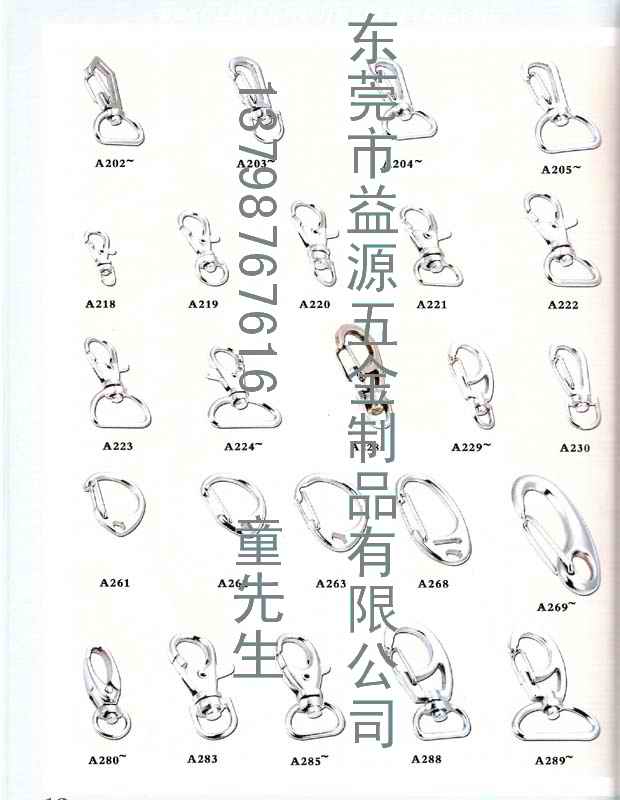 东莞市益源五金制品有限公司
13798767616
童先生
A202~ A203~ A204~ A205~
A218 A219 A220 A221 A222
A223 A224~ A229~ A230
A261 A263 A268 A269~
A280~ A283 A285~ A288 A289~